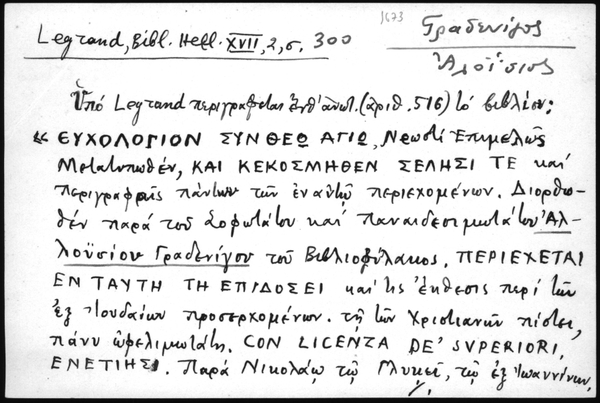 1673
Γραδενίγος
Ἀλοΐσιος
Legrand, Bibl. Hell. XVII, 2, σ. 300
Ὑπό Legrand περιγραφεται ἐνθ' ἀνωτ. (ἀριθ. 516) τό βιβλίον:
« ΕΥΧΟΛΟΓΙΟΝ ΣΥΝΘΕΩ ΑΓΙΩ, Νεωστί Ἐπιμελῶς
Μετατυπωθέν, ΚΑΙ ΚΕΚΟΣΜΗΘΕΝ ΣΕΛΗΣΙ ΤΕ καί
περιγραφαῖς πάντων τῶν ἐν αὐτῷ περιεχομένων. Διορθω-
θέν παρά τοῦ Σοφωτάτου καί Παναιδεσιμωτάτου Ἀλ-
λοϋσίου Γραδενίγου τοῦ Βιβλιοφύλακος. ΠΕΡΙΕΧΕΤΑΙ
ΕΝ ΤΑΥΤΗ ΤΗ ΕΠΙΔΟΣΕΙ καί τις ἔκθεσις περί τῶν
ἐξ Ἰουδαίων προσερχομένων. τῇ τῶν Χριστιανῶν πίστει,
πάνυ ὠφελιμωτάτη. CON LICENZA DE' SVPERIORI,
ΕΝΕΤΙΗΣΙ. Παρά Νικολάῳ τῷ Γλυκεῖ, τῷ ἐξ Ἰωαννίνων,